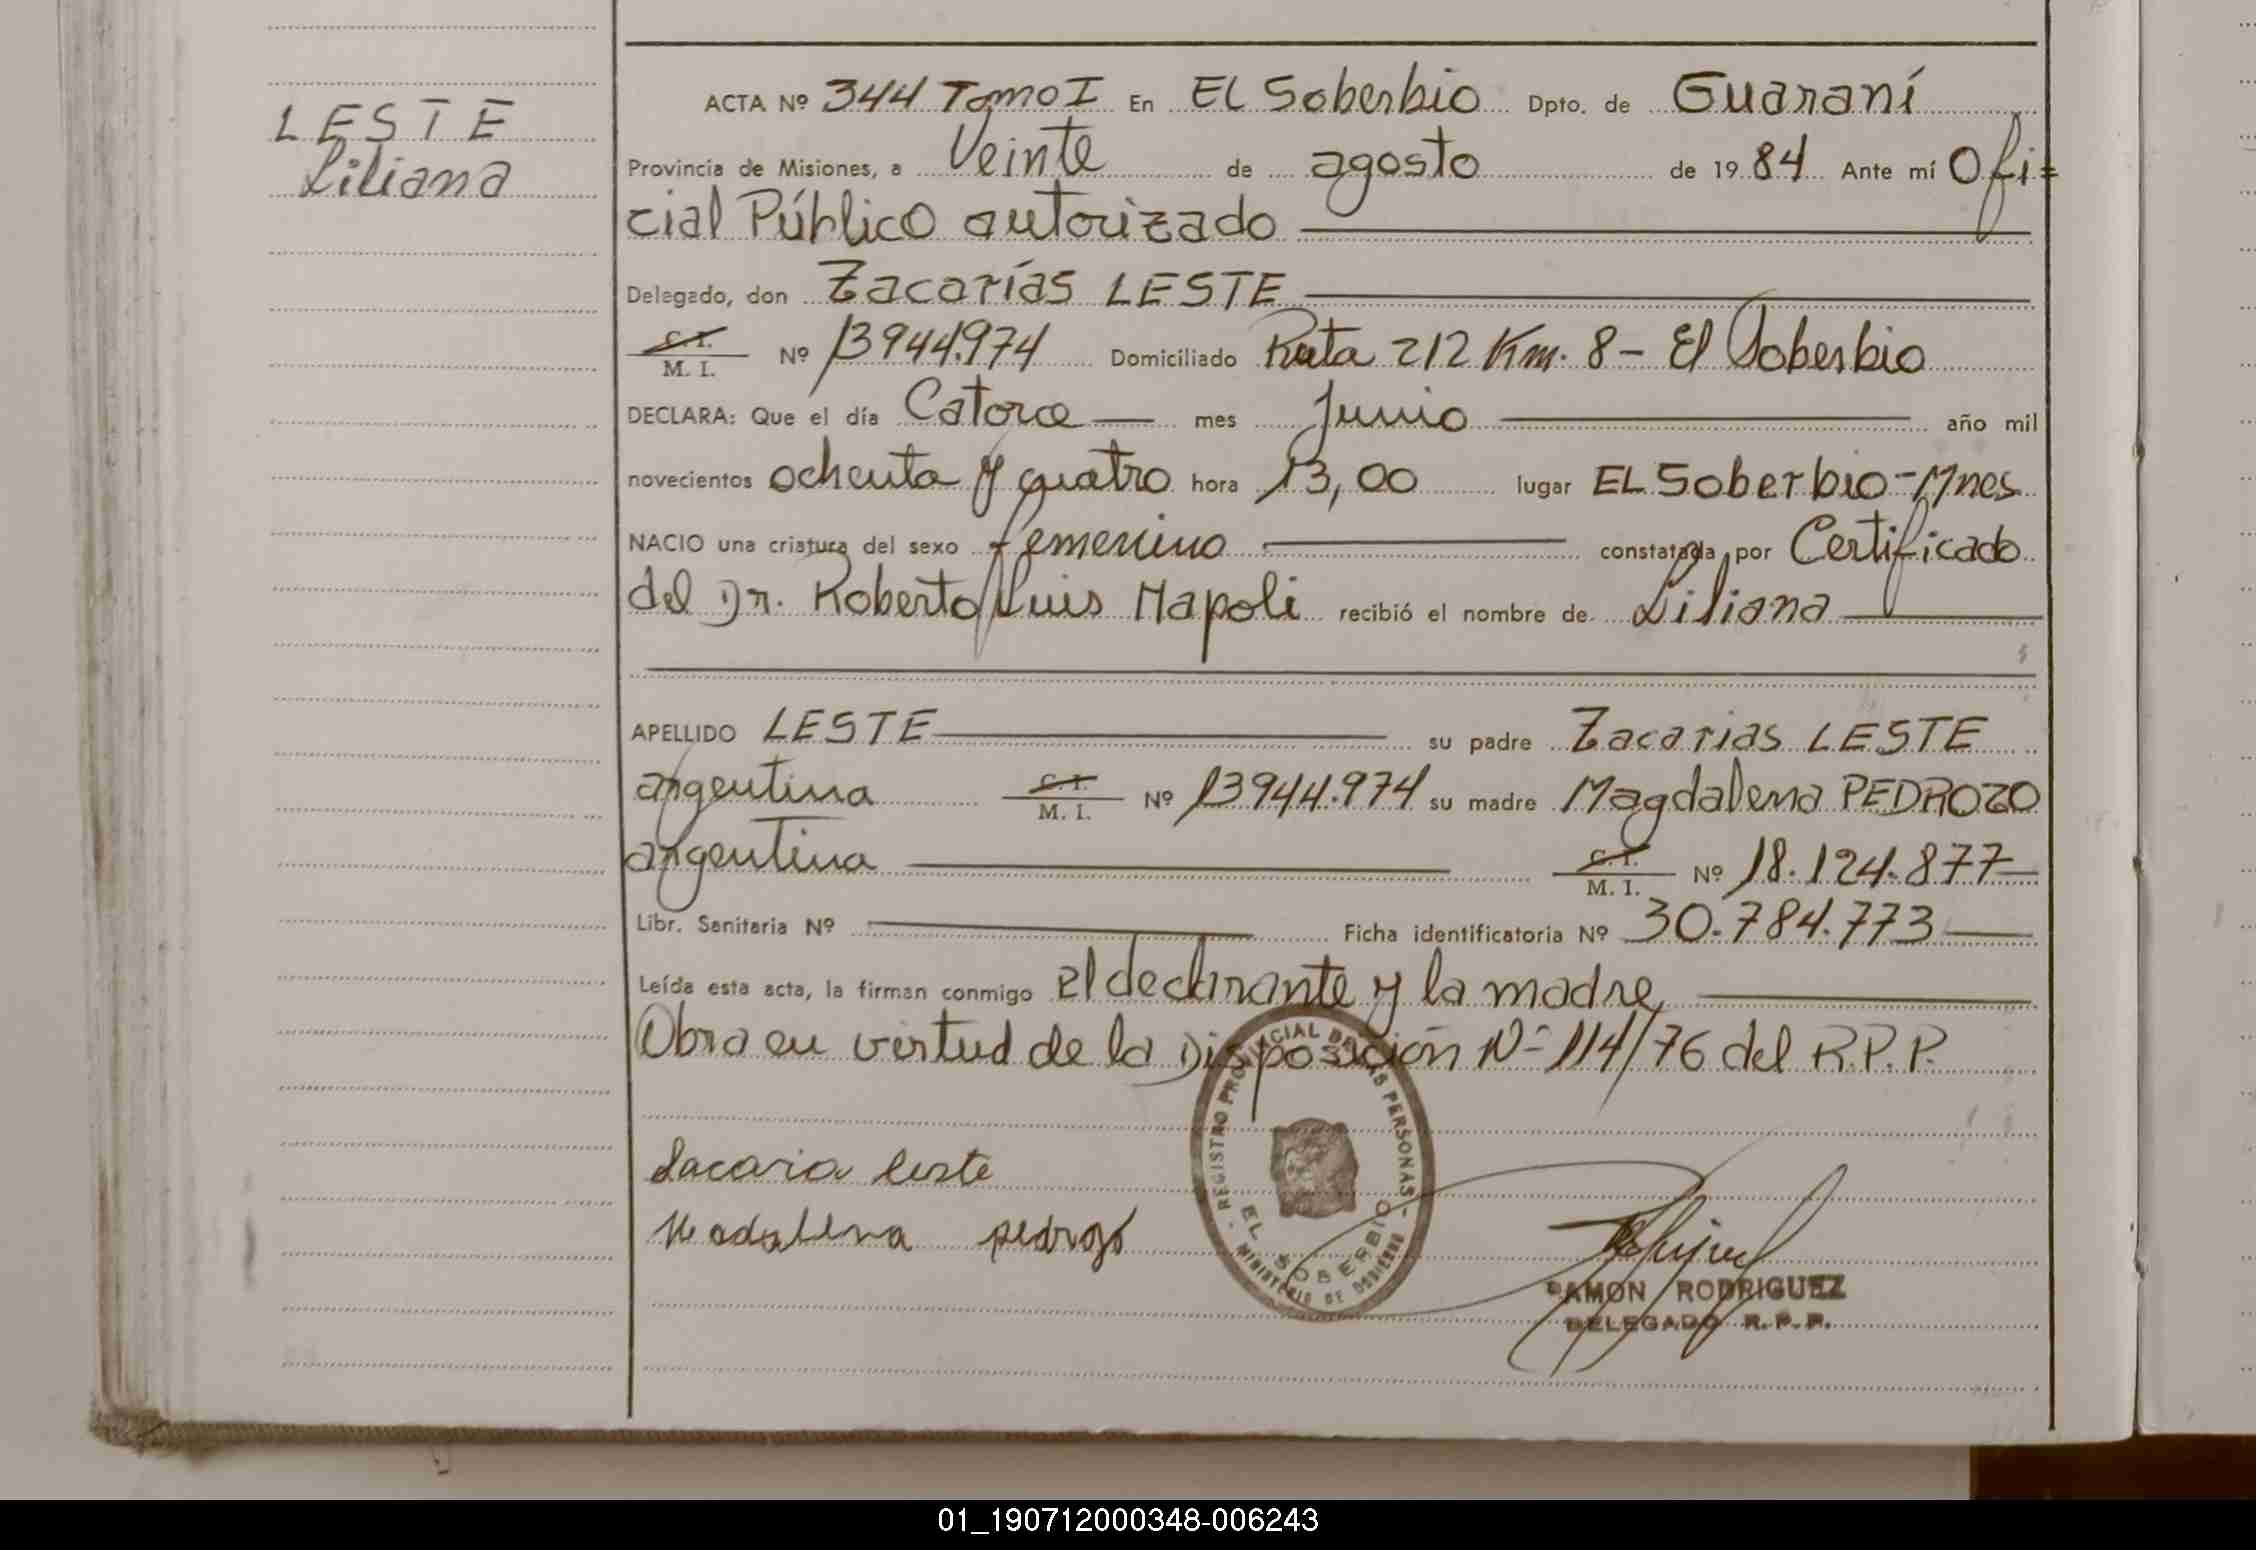 LESTE
Liliana
ACTA Nº 344 Tomo I En EL Soberbio Dpto. de Guaraní
Provincia de Misiones, a Veinte de agosto de 1984 Ante mí Ofi=
cial Público autorizado
Delegado, don Zacarías LESTE
C. I.
M. I. Nº 13944.974 Domiciliado Ruta 212 Km. 8 - El Soberbio
DECLARA: Que el día Catorce mes Junio año mil
novecientos ochenta y cuatro hora 13,00 lugar EL Soberbio-Mnes
NACIO una criatura del sexo femenino constatada por Certificado
del Dr. Roberto Luis Napoli recibió el nombre de Liliana
APELLIDO LESTE su padre Zacarias LESTE
argentina C. I. M. I. Nº 13944.974 su madre Magdalena PEDROZO
argentina C. I. M. I. Nº 18.124.877
Libr. Sanitaria Nº Ficha identificatoria Nº 30.784.773
Leída esta acta, la firman conmigo El declarante y la madre
Obra en virtud de la Disposición Nº 114/76 del R.P.P.
Sacaria leste
Madalena pedrozo
REGISTRO PROVINCIAL DE LAS PERSONAS
EL SOBERBIO
MINISTERIO DE GOBIERNO
RAMON RODRIGUEZ
DELEGADO R. P. P.
01_190712000348-006243